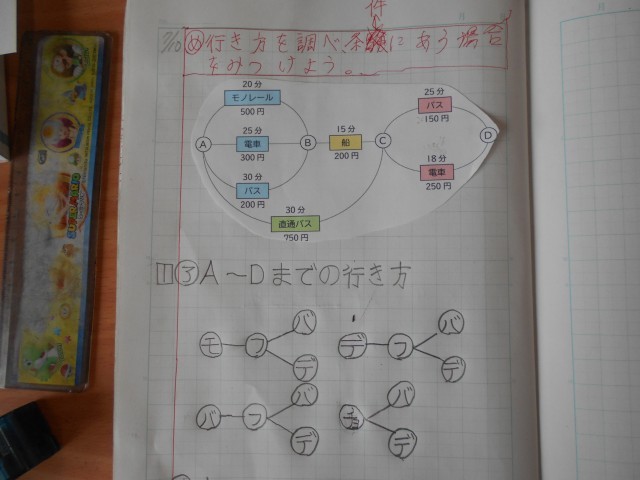 件
7/10 め 行き方を調べ、条にあう場合
をみつけよう。
20分
モノレール
500円
25分
電車
300円
30分
バス
200円
30分
直通バス
750円
15分
船
200円
25分
バス
150円
18分
電車
250円
A
B
C
D
1 ③ A〜Dまでの行き方
モ フ バ デ
デ フ バ デ
バ フ バ デ
バ デ